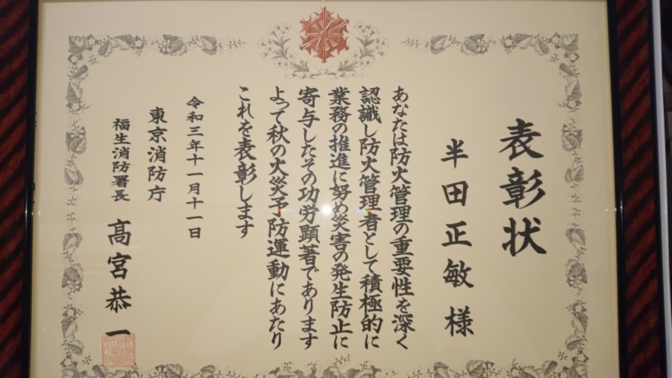 表彰状
半田正敏様
あなたは防火管理の重要性を深く
認識し防火管理者として積極的に
業務の推進に努め災害の発生防止に
寄与したその功労顕著であります
よって秋の火災予防運動にあたり
これを表彰します
令和三年十一月十一日
東京消防庁
福生消防署長
高宮恭一